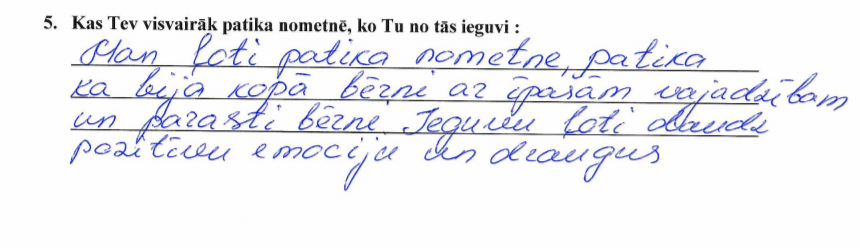 5. Kas Tev visvairāk patika nometnē, ko Tu no tās ieguvi :
Man ļoti patika nometne, patika
ka bija kopā bērni ar īpašām vajadzībam
un parasti bērni. Ieguvu ļoti daudz
pozitīvu emociju un draugus